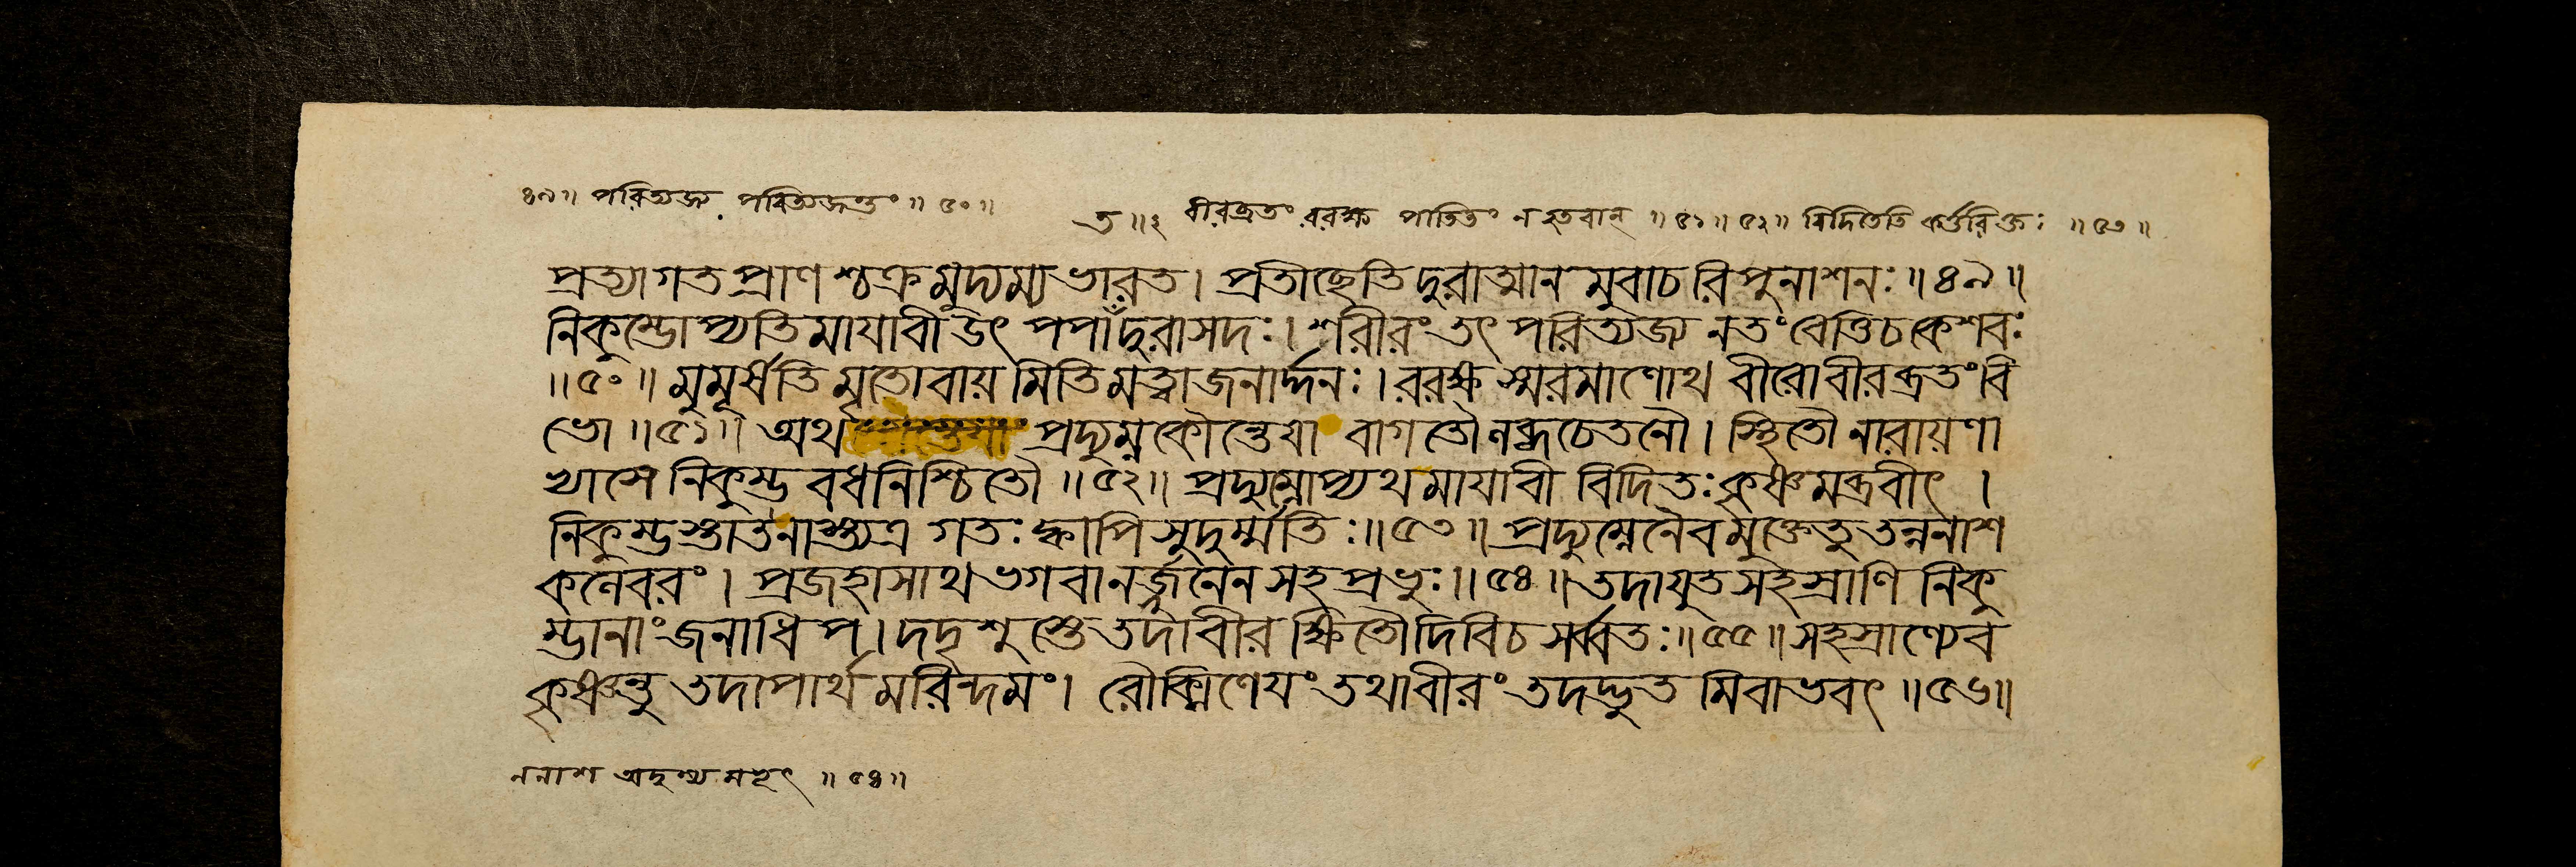 ৪৯॥ পরিত্যজ্য পরিত্যজন্তং॥ ৫০॥
ত॥২ বীরব্রতং ররক্ষ পাতিতং ন হতবান্ ॥ ৫১॥ ৫২॥ বিদিতেতি কর্তরিক্তঃ ॥ ৫৩॥
প্রত্যাগতপ্রাণশ্চক্রমুদ্যম্যভারত। প্রতীচ্ছেতিদুরাত্মানমুবাচরিপুনাশনঃ॥৪৯॥
নিকুম্ভোপ্যতিমাযাবীউৎপপাঁদুরাসদঃ। শরীরং তৎ পরিত্যজ্য নতংবেত্তিচকেশবঃ
॥৫০॥ মুমূর্ষতি মৃতোবায়মিতিমত্বাজনার্দ্দনঃ। ররক্ষ স্মরমাণোথ বীরোবীরব্রতংবি
ভো॥৫১॥ অথ প্রদ্যুম্নকৌন্তেযা বাগতৌলব্ধচেতনৌ। স্থিতৌ নারায়ণা
খ্যাসে নিকুম্ভবধনিশ্চিতৌ॥৫২॥ প্রদ্যুম্নোপ্যথমাযাবী বিদিতঃকৃষ্ণমব্রবীৎ ।
নিকুম্ভস্তাতনাস্ত্যত্র গতঃ ক্বাপি সুদুর্ম্মতিঃ॥৫৩॥ প্রদ্যুম্নেনৈবমুক্তেতু তন্ননাশ
কলেবরং। প্রজহাসাথ ভগবানর্জ্জুনেন সহ প্রভুঃ॥৫৪॥ তদাযুতসহস্রাণি নিকু
ম্ভানাংজনাধিপ। দদৃশুস্তে তদাবীর ক্ষিতৌদিবিচ সর্ব্বতঃ॥৫৫॥ সহস্রাণ্যেব
কৃষ্ণন্তু তদাপার্থমরিন্দমং। রৌক্মিণেযং তথাবীরং তদদ্ভুতমিবাভবৎ॥৫৬॥
ননাশ অদৃশ্যমভূৎ ॥৫৪॥